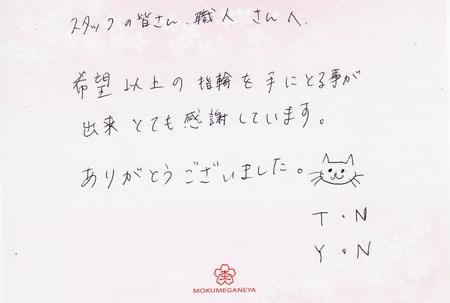 スタッフの皆さん、職人さんへ
希望以上の指輪を手にとる事が
出来とても感謝しています。
ありがとうございました。
T・N
Y・N
MOKUMEGANEYA